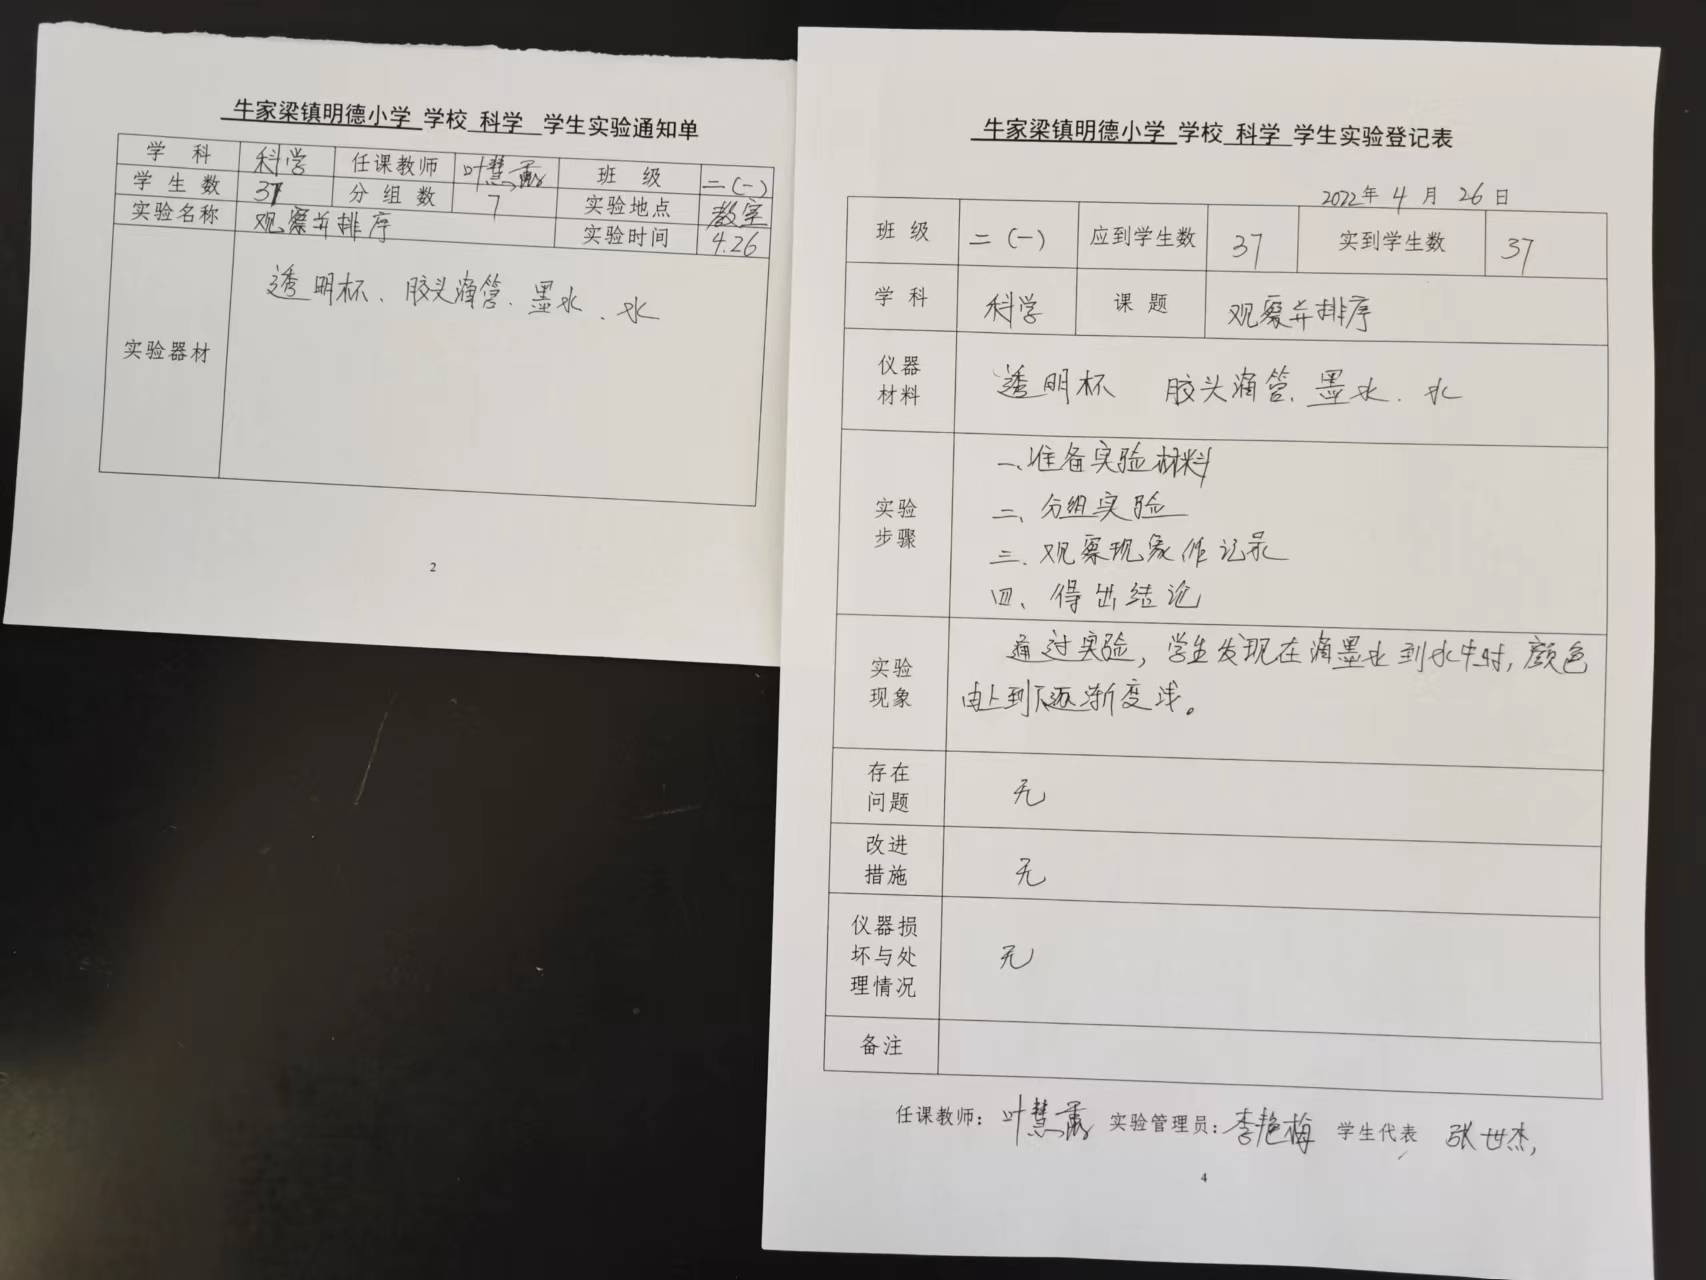 牛家梁镇明德小学 学校 科学 学生实验通知单
学 科 科学 任课教师 叶慧 班 级 二(一)
学 生 数 37 分 组 数 7 实验地点 教室
实验名称 观察并排序 实验时间 4.26
实验器材 透明杯、胶头滴管、墨水、水
2
牛家梁镇明德小学 学校 科学 学生实验登记表
2022年 4 月 26 日
班 级 二(一) 应到学生数 37 实到学生数 37
学 科 科学 课 题 观察并排序
仪器
材料
透明杯 胶头滴管、墨水、水
实验
步骤
一、准备实验材料
二、分组实验
三、观察现象作记录
四、得出结论
实验
现象
通过实验,学生发现在滴墨水到水中时,颜色
由上到下逐渐变浅。
存在
问题
无
改进
措施
无
仪器损
坏与处
理情况
无
备注
任课教师: 叶慧 实验管理员: 李艳梅 学生代表 张世杰,
4